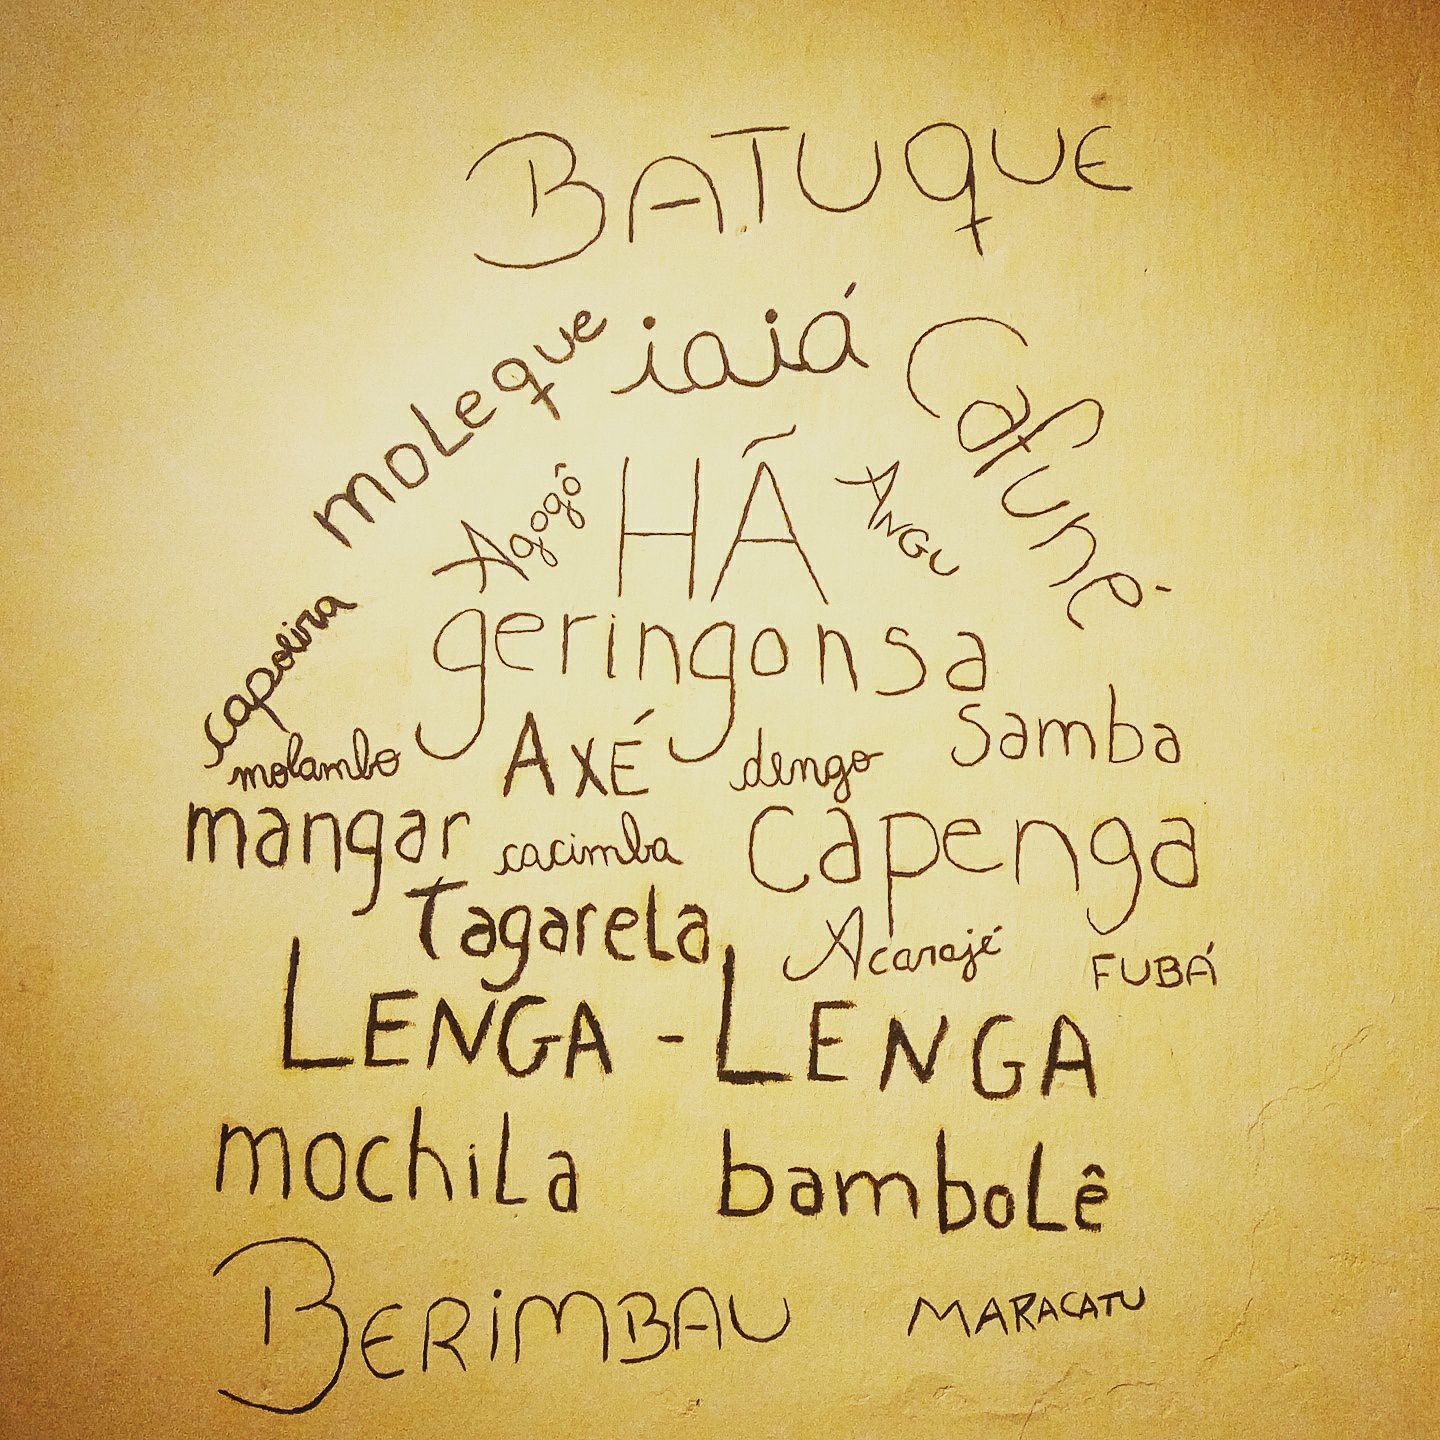 BATUQUE
moLeque iaiá Cafuné
Agogô HÃ ANGU
capoeira geringonsa
molambo AXÉ dengo samba
mangar cacimba capenga
Tagarela Acarajé FUBÁ
LENGA-LENGA
mochila bambolê
BERiMBAU MARACATU